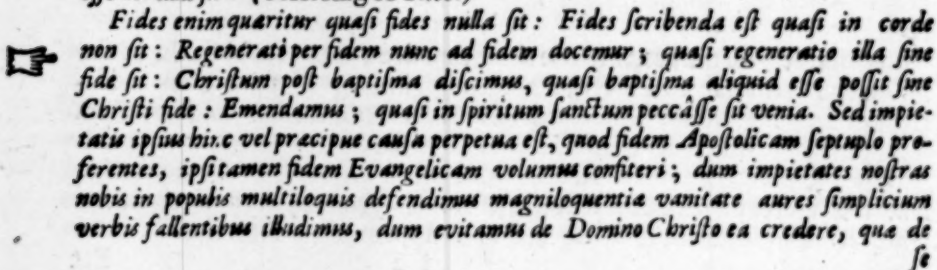 Fides enim quæritur quaſi fides nulla ſit : Fides ſcribenda eſt quaſi in corde
non ſit : Regenerati per fidem nunc ad fidem docemur ; quaſi regeneratio illa ſine
fide ſit : Chriſtum poſt baptiſma diſcimus, quaſi baptiſma aliquid eſſe poſſit ſine
Chriſti fide : Emendamus ; quaſi in ſpiritum ſanctum peccâſſe ſit venia. Sed impie-
tatis ipſius hinc vel præcipue cauſa perpetua eſt, quod fidem Apoſtolicam ſeptuplo pro-
ferentes, ipſi tamen fidem Evangelicam volumus confiteri ; dum impietates noſtras
nobis in populis multiloquis defendimus magniloquentiæ vanitate aures ſimplicium
verbis fallentibus illudimus, dum evitamus de Domino Chriſto ea credere, quæ de
ſe